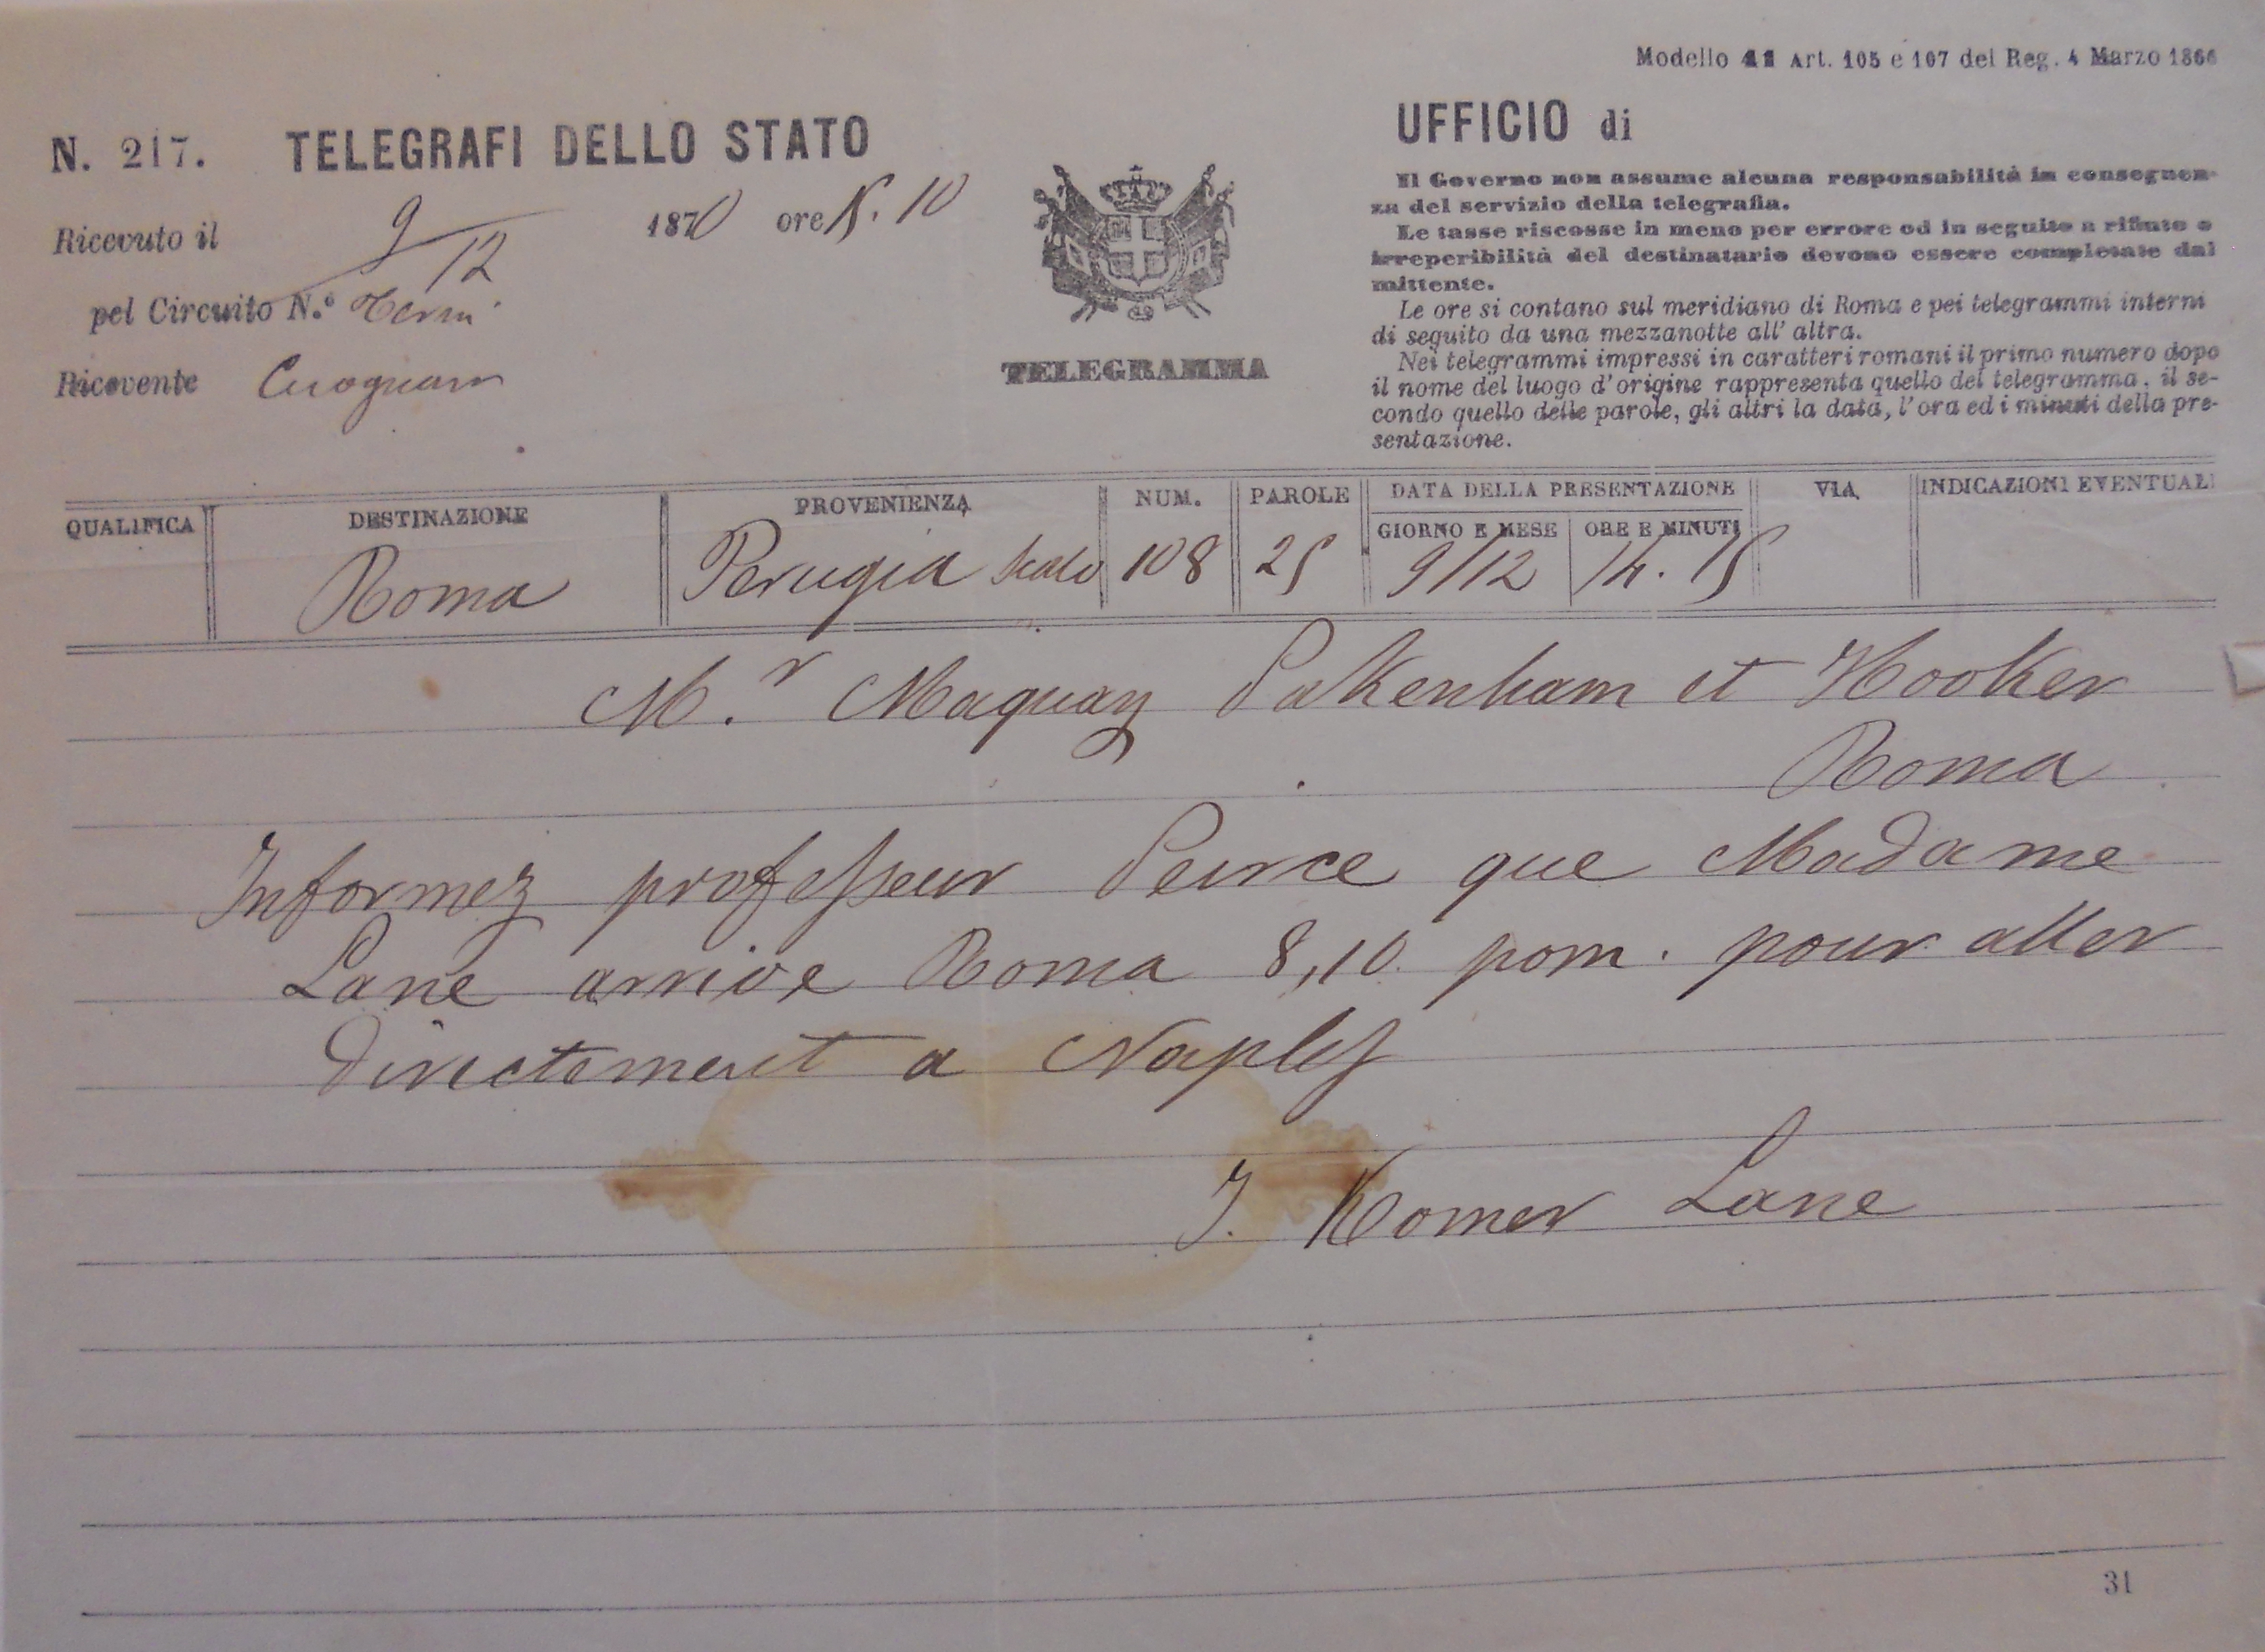 Modello 11 Art. 105 e 107 del Reg. 4 Marzo 1866
N. 217. TELEGRAFI DELLO STATO
UFFICIO di
Ricevuto il 9/12 1870 ore 15.10
pel Circuito N.º Terni
Ricevente
TELEGRAMMA
Il Governo non assume alcuna responsabilità in conseguen-
za del servizio della telegrafia.
Le tasse riscosse in meno per errore od in seguito a rifiuto o
irreperibilità del destinatario devono essere completate dal
mittente.
Le ore si contano sul meridiano di Roma e pei telegrammi interni
di seguito da una mezzanotte all' altra.
Nei telegrammi impressi in caratteri romani il primo numero dopo
il nome del luogo d'origine rappresenta quello del telegramma, il se-
condo quello delle parole, gli altri la data, l'ora ed i minuti della pre-
sentazione.
QUALIFICA DESTINAZIONE PROVENIENZA NUM. PAROLE DATA DELLA PRESENTAZIONE VIA INDICAZIONI EVENTUALI
GIORNO E MESE ORE E MINUTI
Roma Perugia Scalo 108 25 9/12 14.15
M.r Maquay Pakenham et Hooker
Roma
Informez professeur Peirce que Madame
Lane arrive Roma 8,10 pom. pour aller
directement a Naples
J. Homer Lane
31